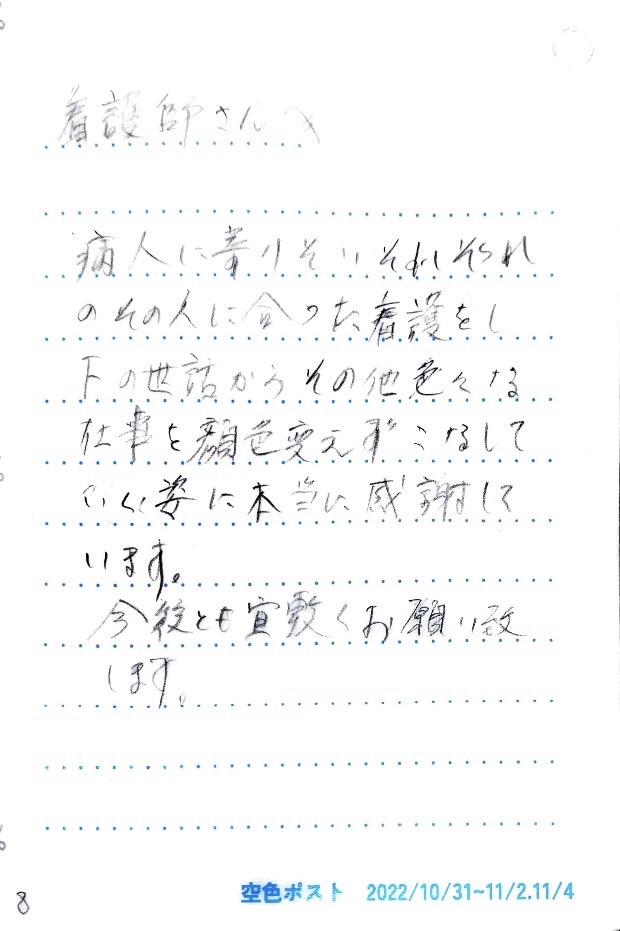 看護師さんへ
病人に寄りそいそれぞれ
のその人に合った看護をし
下の世話からその他色々な
仕事を顔色変えずこなして
いく姿に本当に感謝して
います。
今後とも宜敷くお願い致
します。
8
空色ポスト 2022/10/31~11/2.11/4